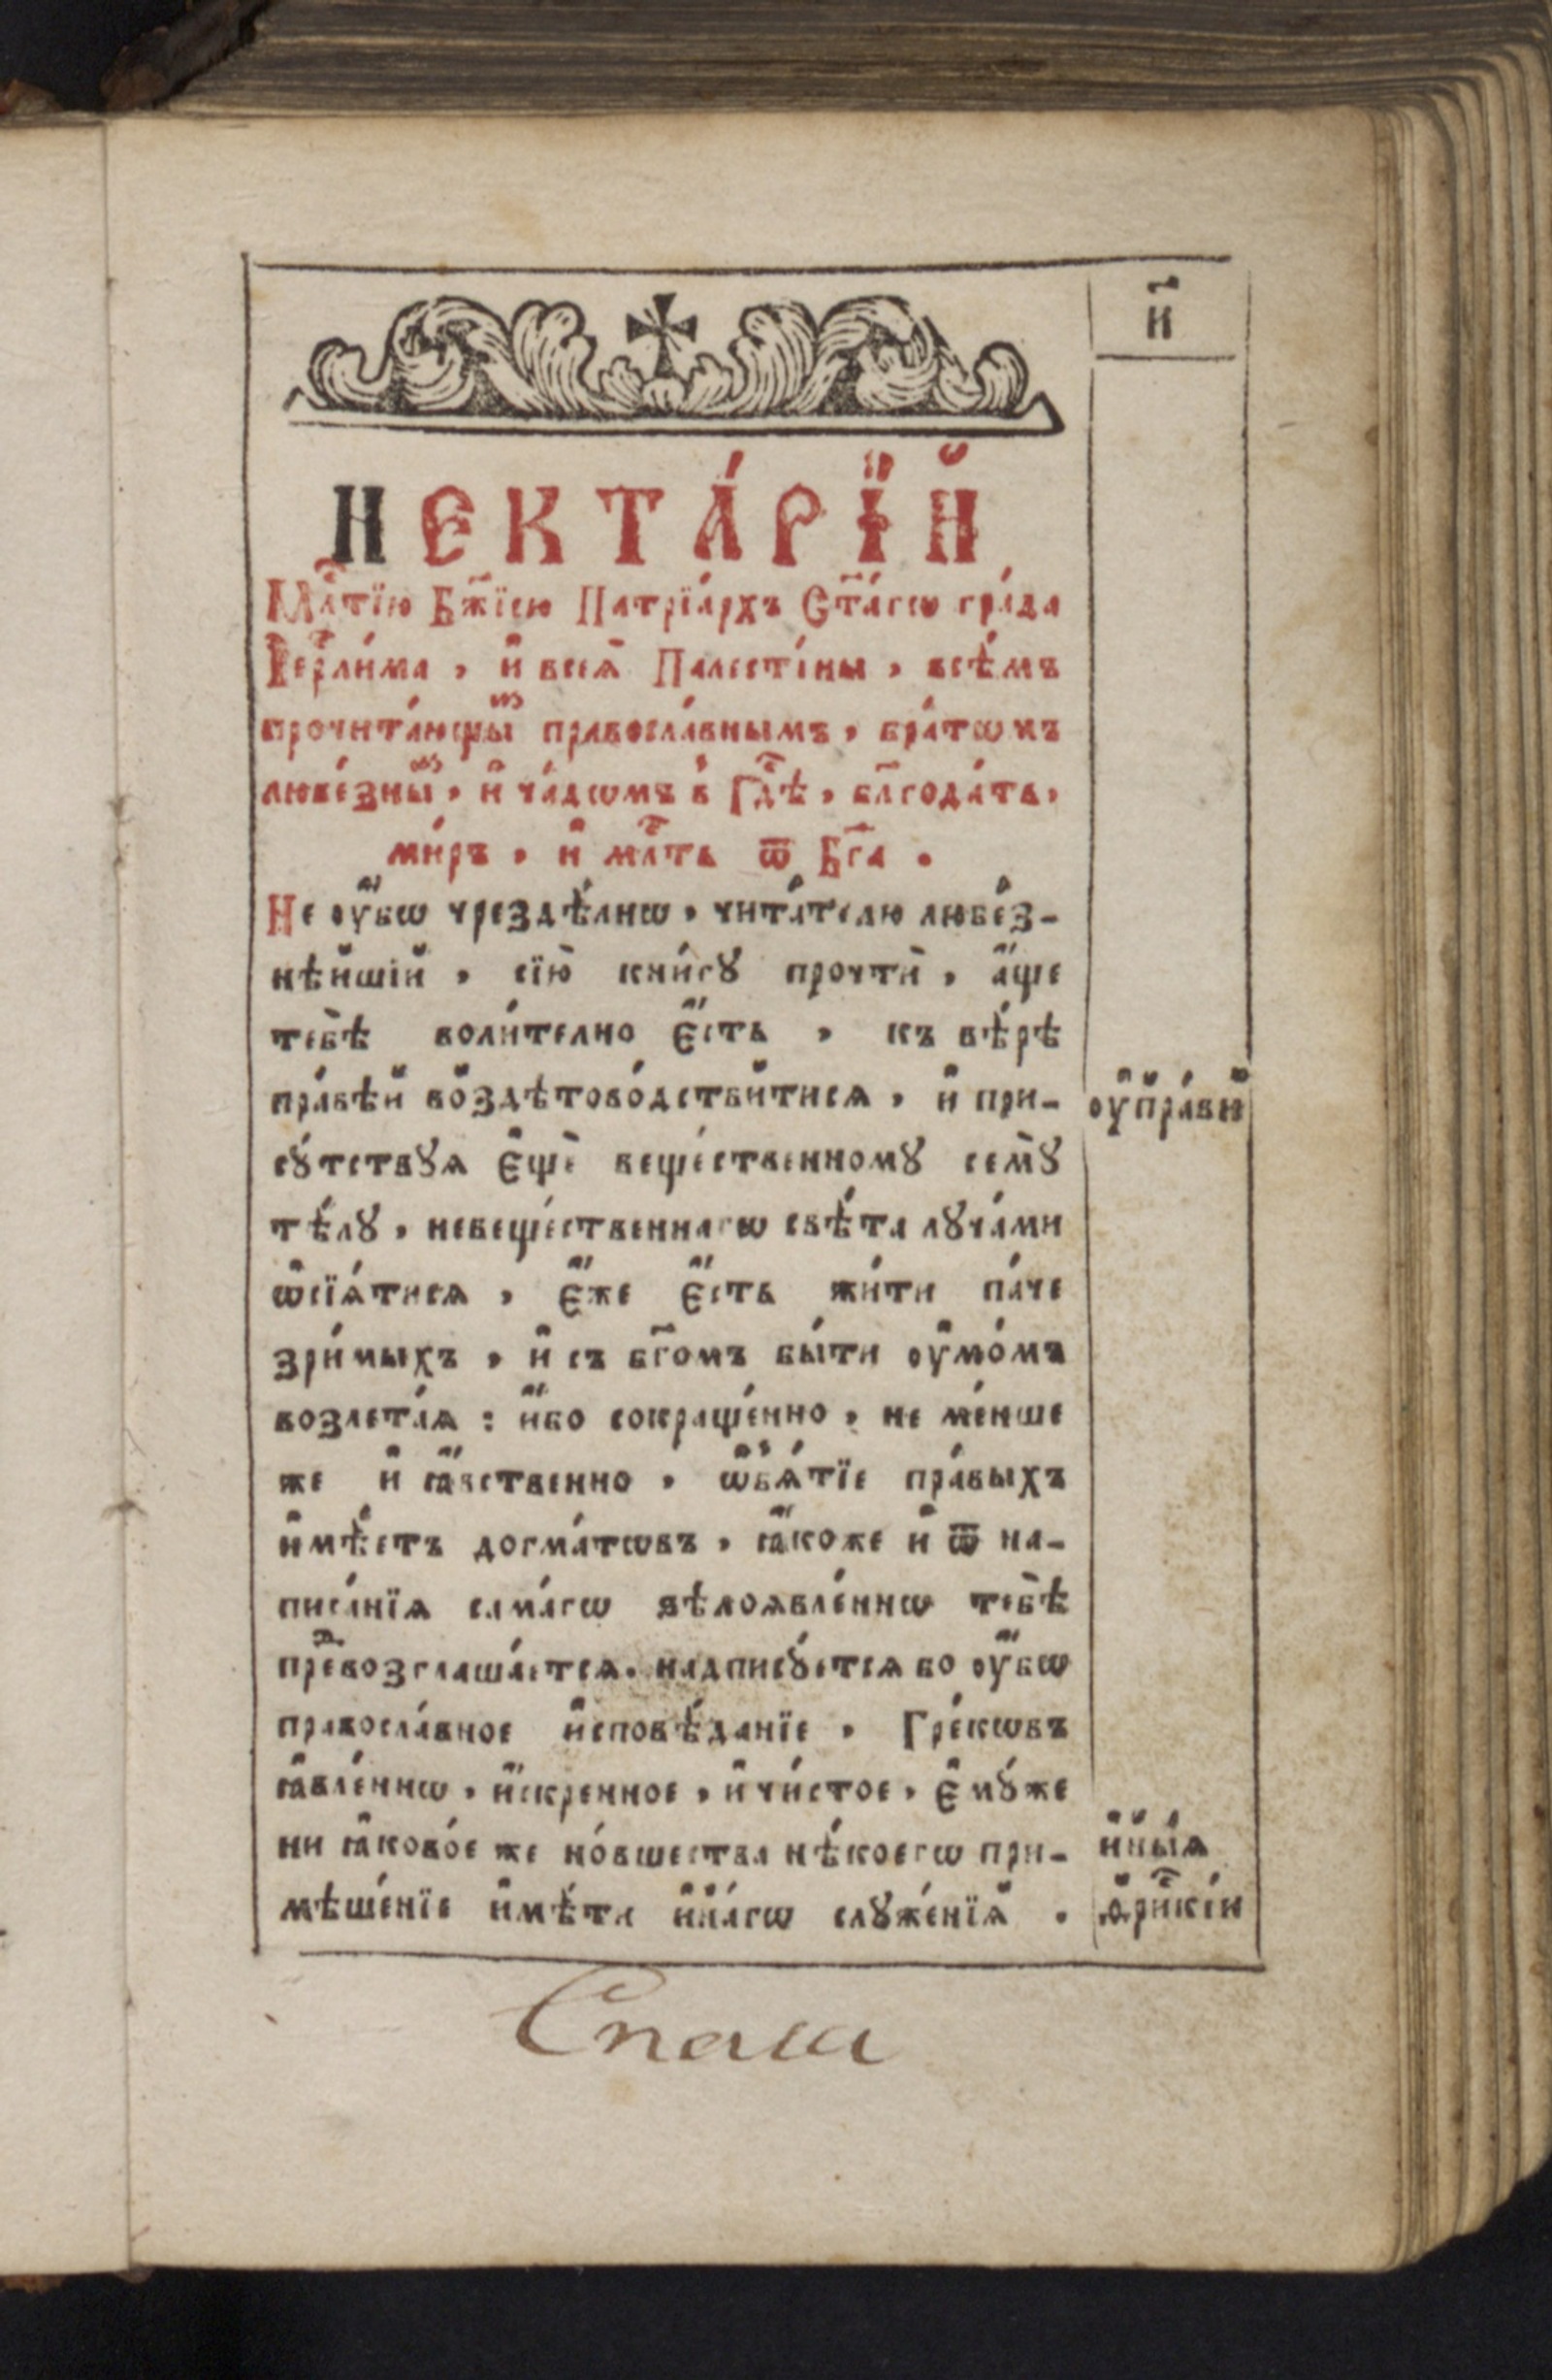 и҃
НЕКТА́РЇЙ
Млⷭ҇тїю Бж҃їею Патрїа́рхъ Ст҃а́гѡ гра́да
І҆ерⷭ҇ли́ма, и҆ всеѧ̀ Палесті́ны, всѣ́мъ
прочита́ющыⷨ правосла́внымъ, бра́тѡмъ
любе́зныⷨ, и҆ ча́дѡмъ в̾ Гдⷭ҇ѣ, бл҃года́ть,
ми́ръ, и҆ млⷭ҇ть ѿ Бг҃а.
Не ᲂу҆́бѡ чрездѣ́лнѡ, чита́телю любе́з-
нѣйшїй, сїю̀ кни́гꙋ прочтѝ, а҆́ще
тебѣ̀ воли́телно є҆́сть, къ вѣ́рѣ
пра́вѣй воздѣтово́дстви́тисѧ, и҆ при-
сꙋ́тствꙋѧ є҆щѐ веще́ственномꙋ семꙋ̀
тѣ́лꙋ, невеще́ственнагѡ свѣ́та лꙋча́ми
ѡ҆сїѧ́тисѧ, є҆́же є҆́сть жи́ти па́че
зри́мыхъ, и҆ съ бг҃омъ бы́ти ᲂу҆мо́мъ
возлета́ѧ: и҆́бо сокраще́нно, не ме́нше
же и҆ ꙗ҆́вственно, ѡ҆б̾ѧ́тїе пра́выхъ
и҆мѣ́етъ догма́тѡвъ, ꙗ҆́коже и҆ ѿ на-
писа́нїѧ сама́гѡ ѕѣлоѧвле́ннѡ тебѣ̀
преⷣвозглаша́етсѧ. надписꙋ́етсѧ бо ᲂу҆́бѡ
правосла́вное и҆сповѣ́данїе, Гре́кѡвъ
ꙗ҆вле́ннѡ, и҆́скренное, и҆ чи́стое, є҆мꙋ́же
ни ꙗ҆ково́е же но́вшества нѣ́коегѡ при-
мѣше́нїе и҆мѣ́ти и҆на́гѡ слꙋже́нїѧ.
ᲂу҆пра́ви
и҆ны́ѧ
Спаса